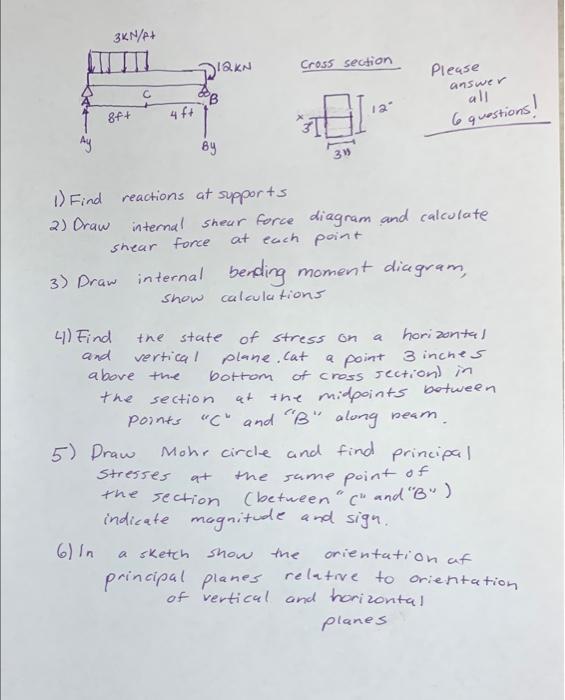 3KN/ft
12KN
Cross section
Please
answer
all
6 questions!
C
A
B
8ft
4ft
Ay
By
x
3"
12"
3"
1) Find reactions at supports
2) Draw internal shear force diagram and calculate
shear force at each point
3) Draw internal bending moment diagram,
show calculations
4) Find the state of stress on a horizontal
and vertical plane. (at a point 3 inches
above the bottom of cross section) in
the section at the midpoints between
points "C" and "B" along beam.
5) Draw Mohr circle and find principal
stresses at the same point of
the section (between "C" and "B")
indicate magnitude and sign.
6) In a sketch show the orientation of
principal planes relative to orientation
of vertical and horizontal
planes